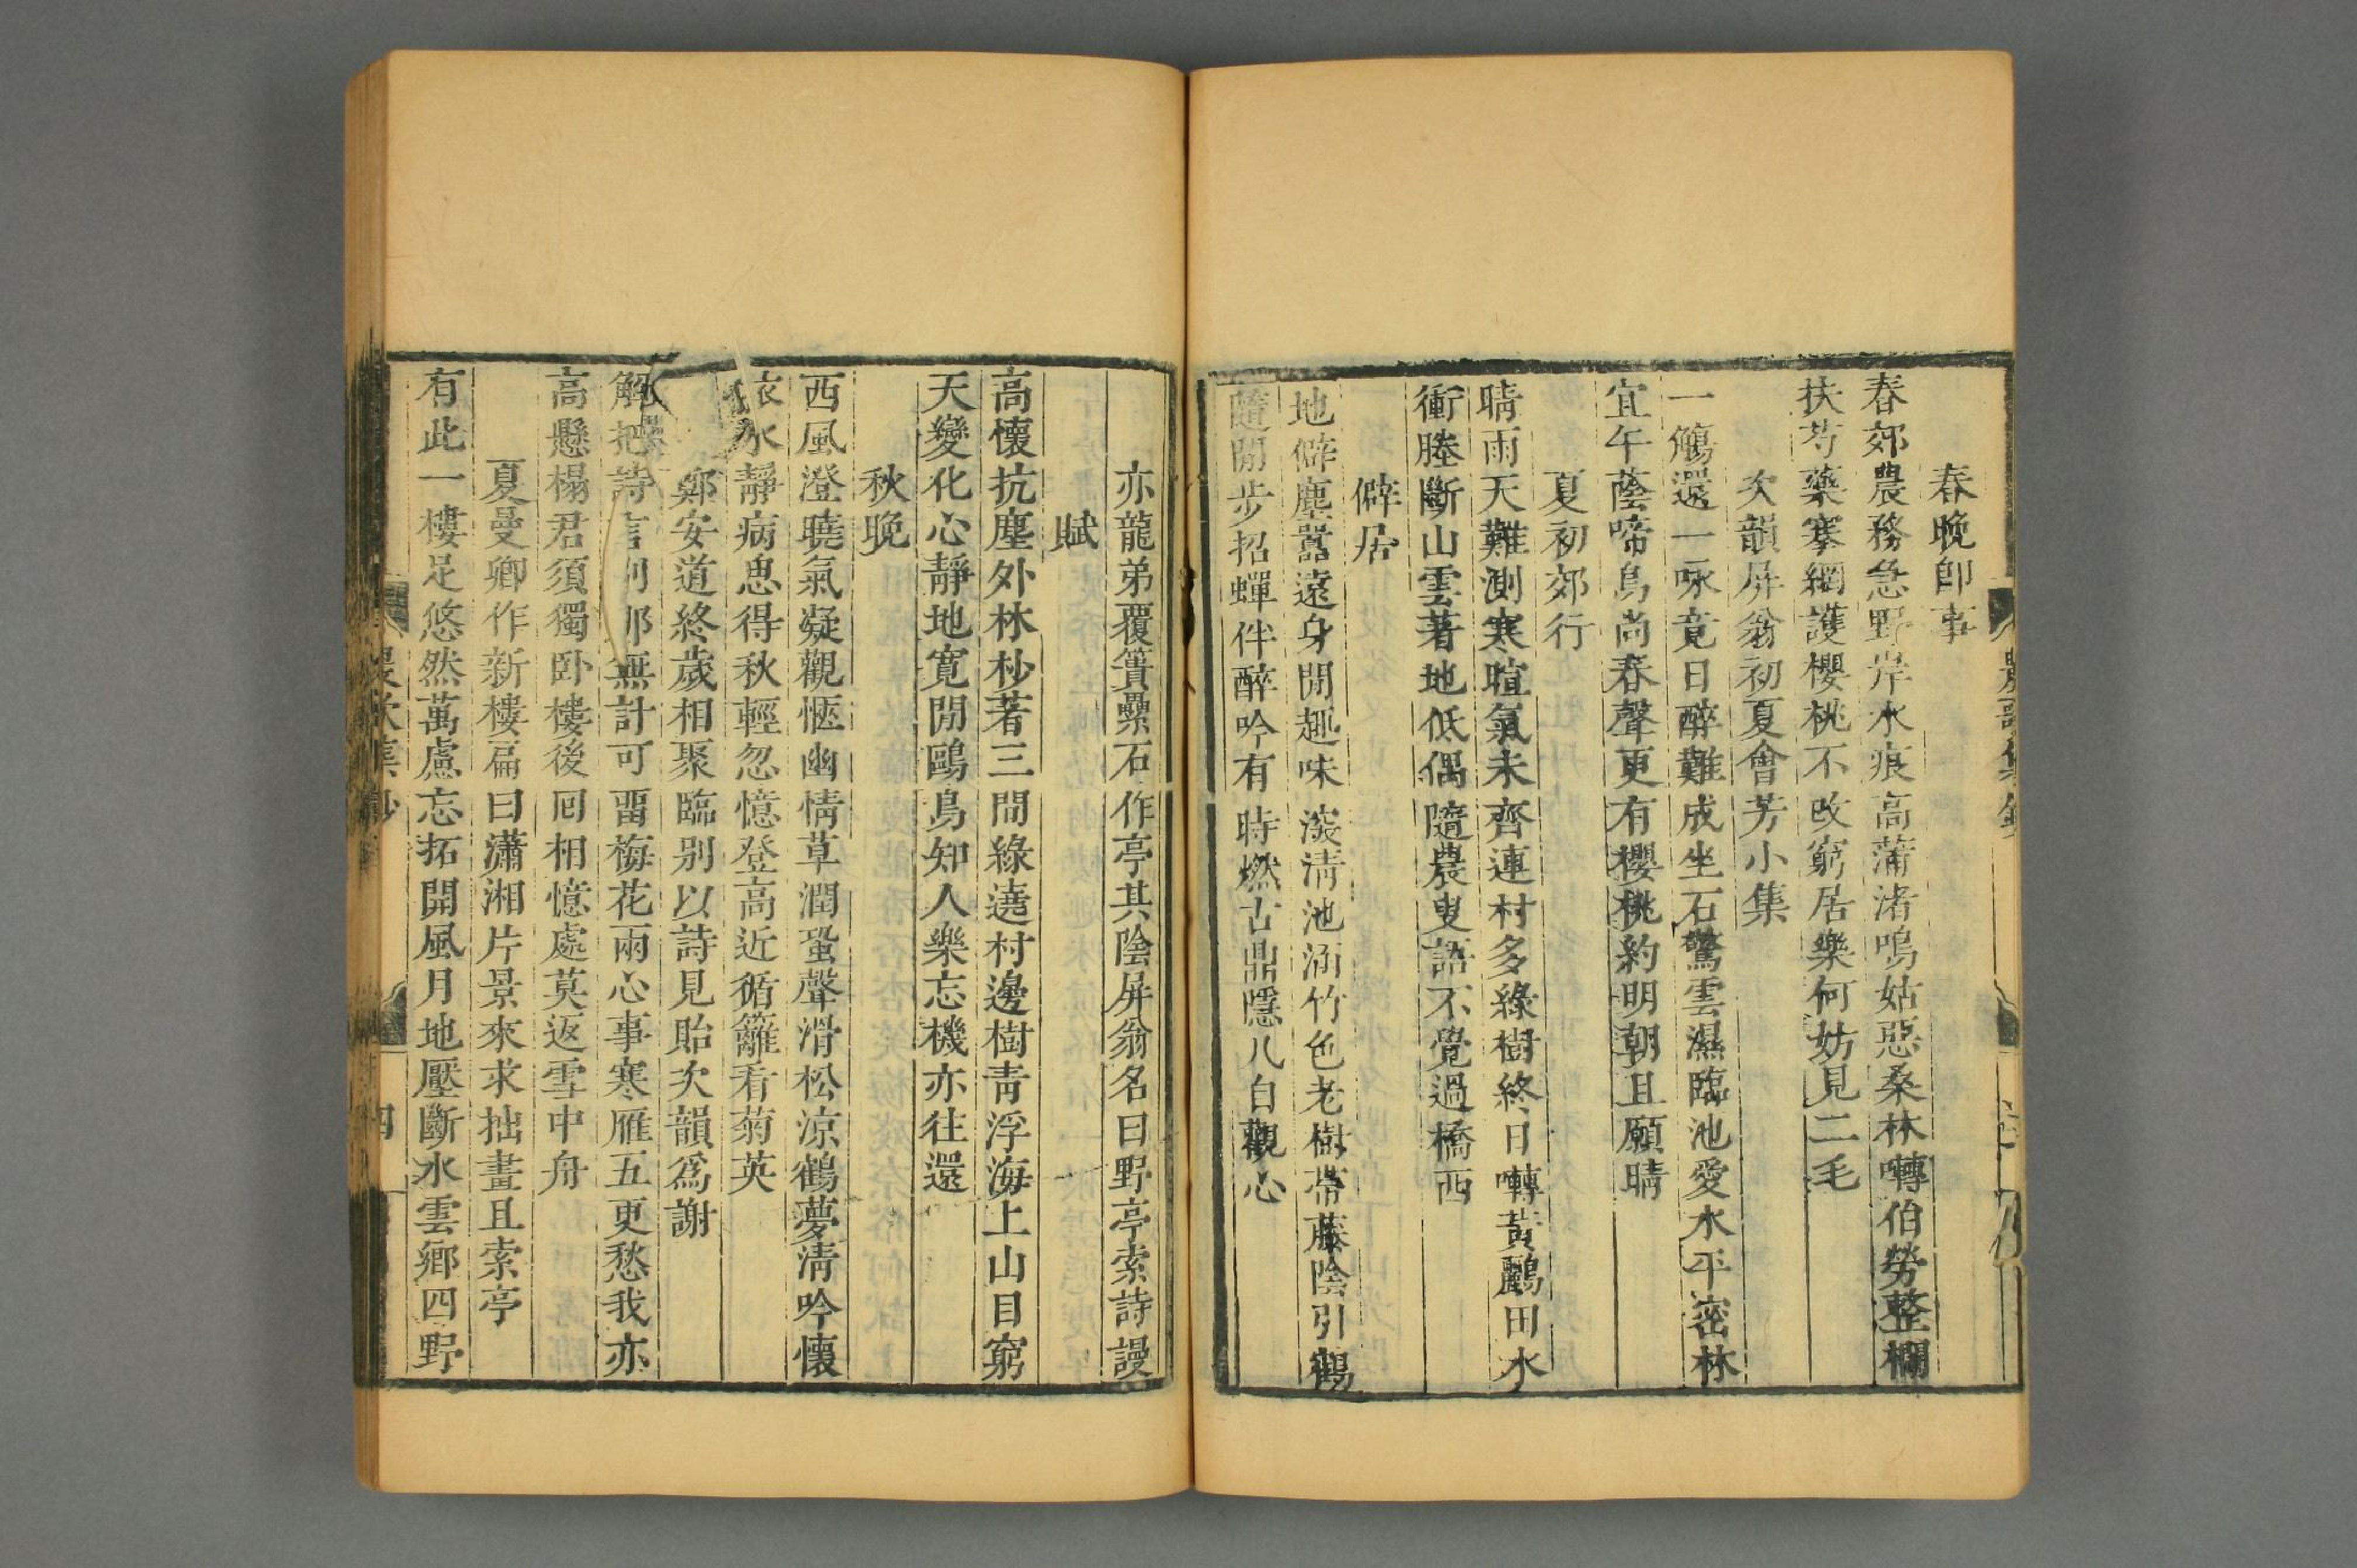 春晚卽事
春郊農務急野岸水痕高蒲渚鳴姑惡桑林囀伯勞整欄
扶芍藥搴網護櫻桃不改窮居樂何妨見二毛
次韻屏翁初夏會芳小集
一觴還一咏竟日醉難成坐石驚雲濕臨池愛水平密林
宜午蔭啼鳥尚春聲更有櫻桃約明朝且願晴
夏初郊行
晴雨天難測寒暄氣未齊連村多綠樹終日囀黃鸝田水
衝塍斷山雲著地低偶隨農叟語不覺過橋西
僻居
地僻塵囂遠身閒趣味淡淸池涵竹色老樹帶藤陰引鶴
隨閒步招蟬伴醉吟有時燃古鼎隱几自觀心
亦龍弟覆簣壘石作亭其陰屏翁名曰野亭索詩謾
賦
高懷抗塵外林杪著三間綠遶村邊樹靑浮海上山目窮
天變化心靜地寬閒鷗鳥知人樂忘機亦往還
秋晚
西風澄曉氣凝觀愜幽情草潤蛩聲滑松涼鶴夢淸吟懷
水靜病思得秋輕忽憶登高近循籬看菊英
鄭安道終歲相聚臨别以詩見貽次韻爲謝
解把詩言别那無計可畱梅花兩心事寒雁五更愁我亦
高懸榻君須獨卧樓後囘相憶處莫返雪中舟
夏曼卿作新樓扁曰瀟湘片景來求拙畫且索亭
有此一樓足悠然萬慮忘拓開風月地壓斷水雲鄉四野
四